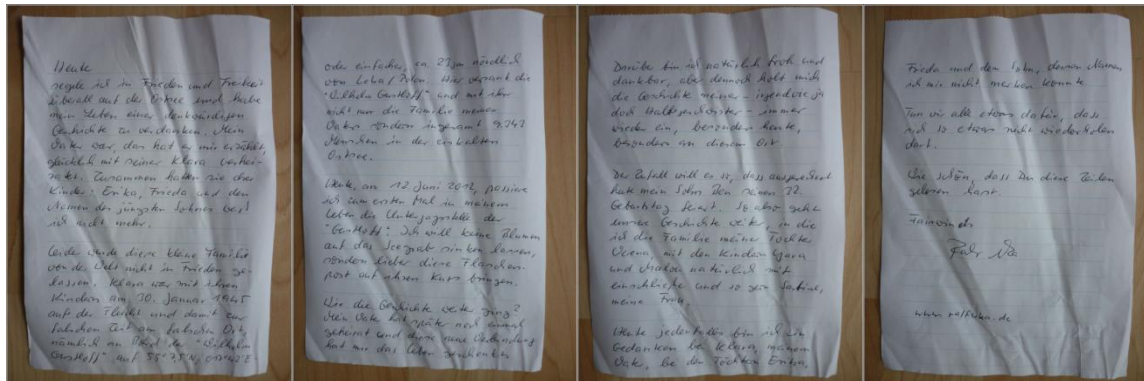 Heute
segle ich in Frieden und Freiheit
überall auf der Ostsee und habe
mein Leben einer denkwürdigen
Geschichte zu verdanken. Mein
Vater war, das hat er mir erzählt,
glücklich mit seiner Klara verhei-
ratet. Zusammen hatten sie drei
Kinder: Erika, Frieda und den
Namen des jüngsten Sohnes weiß
ich nicht mehr.
Leider wurde diese kleine Familie
von der Welt nicht in Frieden ge-
lassen. Klara war mit ihren
Kindern am 30. Januar 1945
auf der Flucht und damit zur
falschen Zeit am falschen Ort,
nämlich an Bord der "Wilhelm
Gustloff" auf
oder einfacher, ca. 23 sm nördlich
von Leba/Polen. Hier versank die
"Wilhelm Gustloff" und mit ihr
nicht nur die Familie meines
Vaters sondern insgesamt 9.343
Menschen in der eiskalten
Ostsee.
Heute, am 12. Juni 2012, passiere
ich zum ersten Mal in meinem
Leben die Untergangsstelle der
"Gustloff". Ich will keine Blumen
auf das Seegrab sinken lassen,
sondern lieber diese Flaschen-
post auf ihren Kurs bringen.
Wie die Geschichte weiter ging?
Mein Vater hat später noch einmal
geheiratet und diese neue Verbindung
hat mir das Leben geschenkt.
Darüber bin ich natürlich froh und
dankbar, aber dennoch holt mich
die Geschichte meiner - irgendwie ja
doch Halbgeschwister - immer
wieder ein, besonders heute,
besonders an diesem Ort.
Der Zufall will es so, dass ausgerechnet
heute mein Sohn Ben seinen 22.
Geburtstag feiert. So also gehen
unsere Geschichten weiter, in die
ich die Familie meiner Tochter
mit den Kindern
und natürlich mit
einschließe und so gern
meine Frau.
Heute jedenfalls bin ich in
Gedanken bei Klara, meinem
Vater, bei den Töchtern Erika,
Frieda und dem Sohn, dessen Namen
ich mir nicht merken konnte.
Tun wir alle etwas dafür, dass
sich so etwas nicht wiederholen
darf.
Wie schön, dass Du diese Zeilen
gelesen hast.
Fairwinds